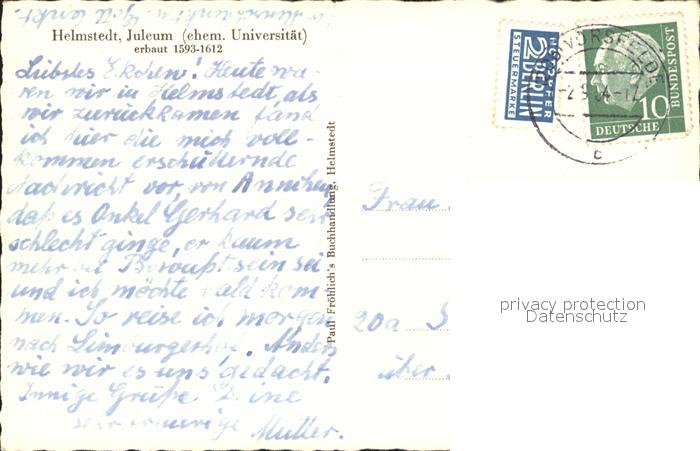 Helmstedt, Juleum (ehem. Universität)
erbaut 1593-1612
Liebstes! Heute wa-
ren wir in Helmstedt, als
wir zurückkamen fand
ich hier die mich voll-
kommen erschütternde
Nachricht vor, von
daß es Onkel Gerhard sehr
schlecht ginge, er kaum
mehr bei Bewußtsein sei
und ich möchte bald kom-
men. So reise ich morgen
nach Limburgerhof. Anders
wie wir es uns gedacht.
Innige Grüße Deine
sehr traurige
Mutter.
Paul Fröhlich's Buchhandlung, Helmstedt
NOTOPFER
2 BERLIN
STEUERMARKE
VORSFELDE
DEUTSCHE
BUNDESPOST
10
Frau
20a
über
privacy protection
Datenschutz